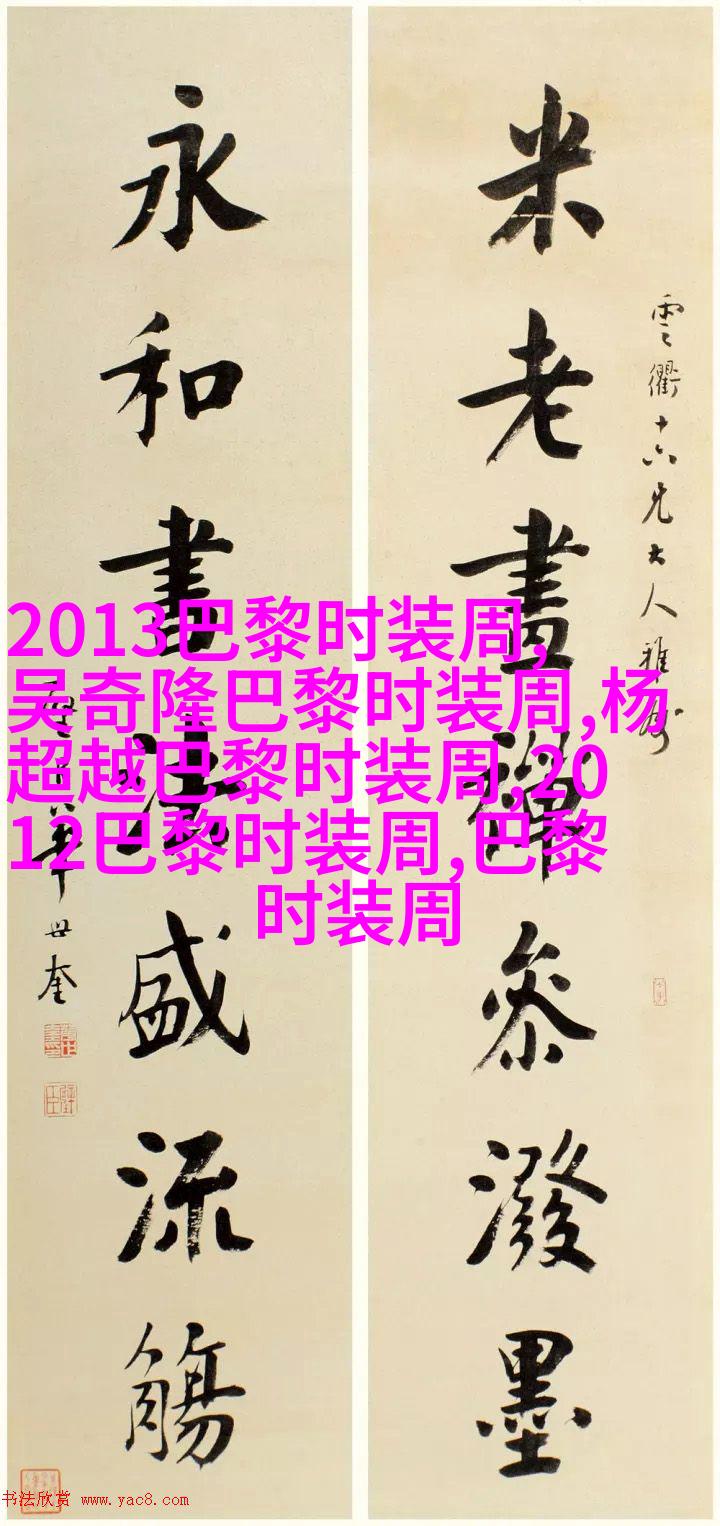 雲衢十六兄大人雅屬
米老畫禪參潑墨
永和書法盛流觴
華世奎
2013巴黎时装周,
吴奇隆巴黎时装周,杨
超越巴黎时装周,20
12巴黎时装周,巴黎
时装周
书法欣赏 www.yac8.com